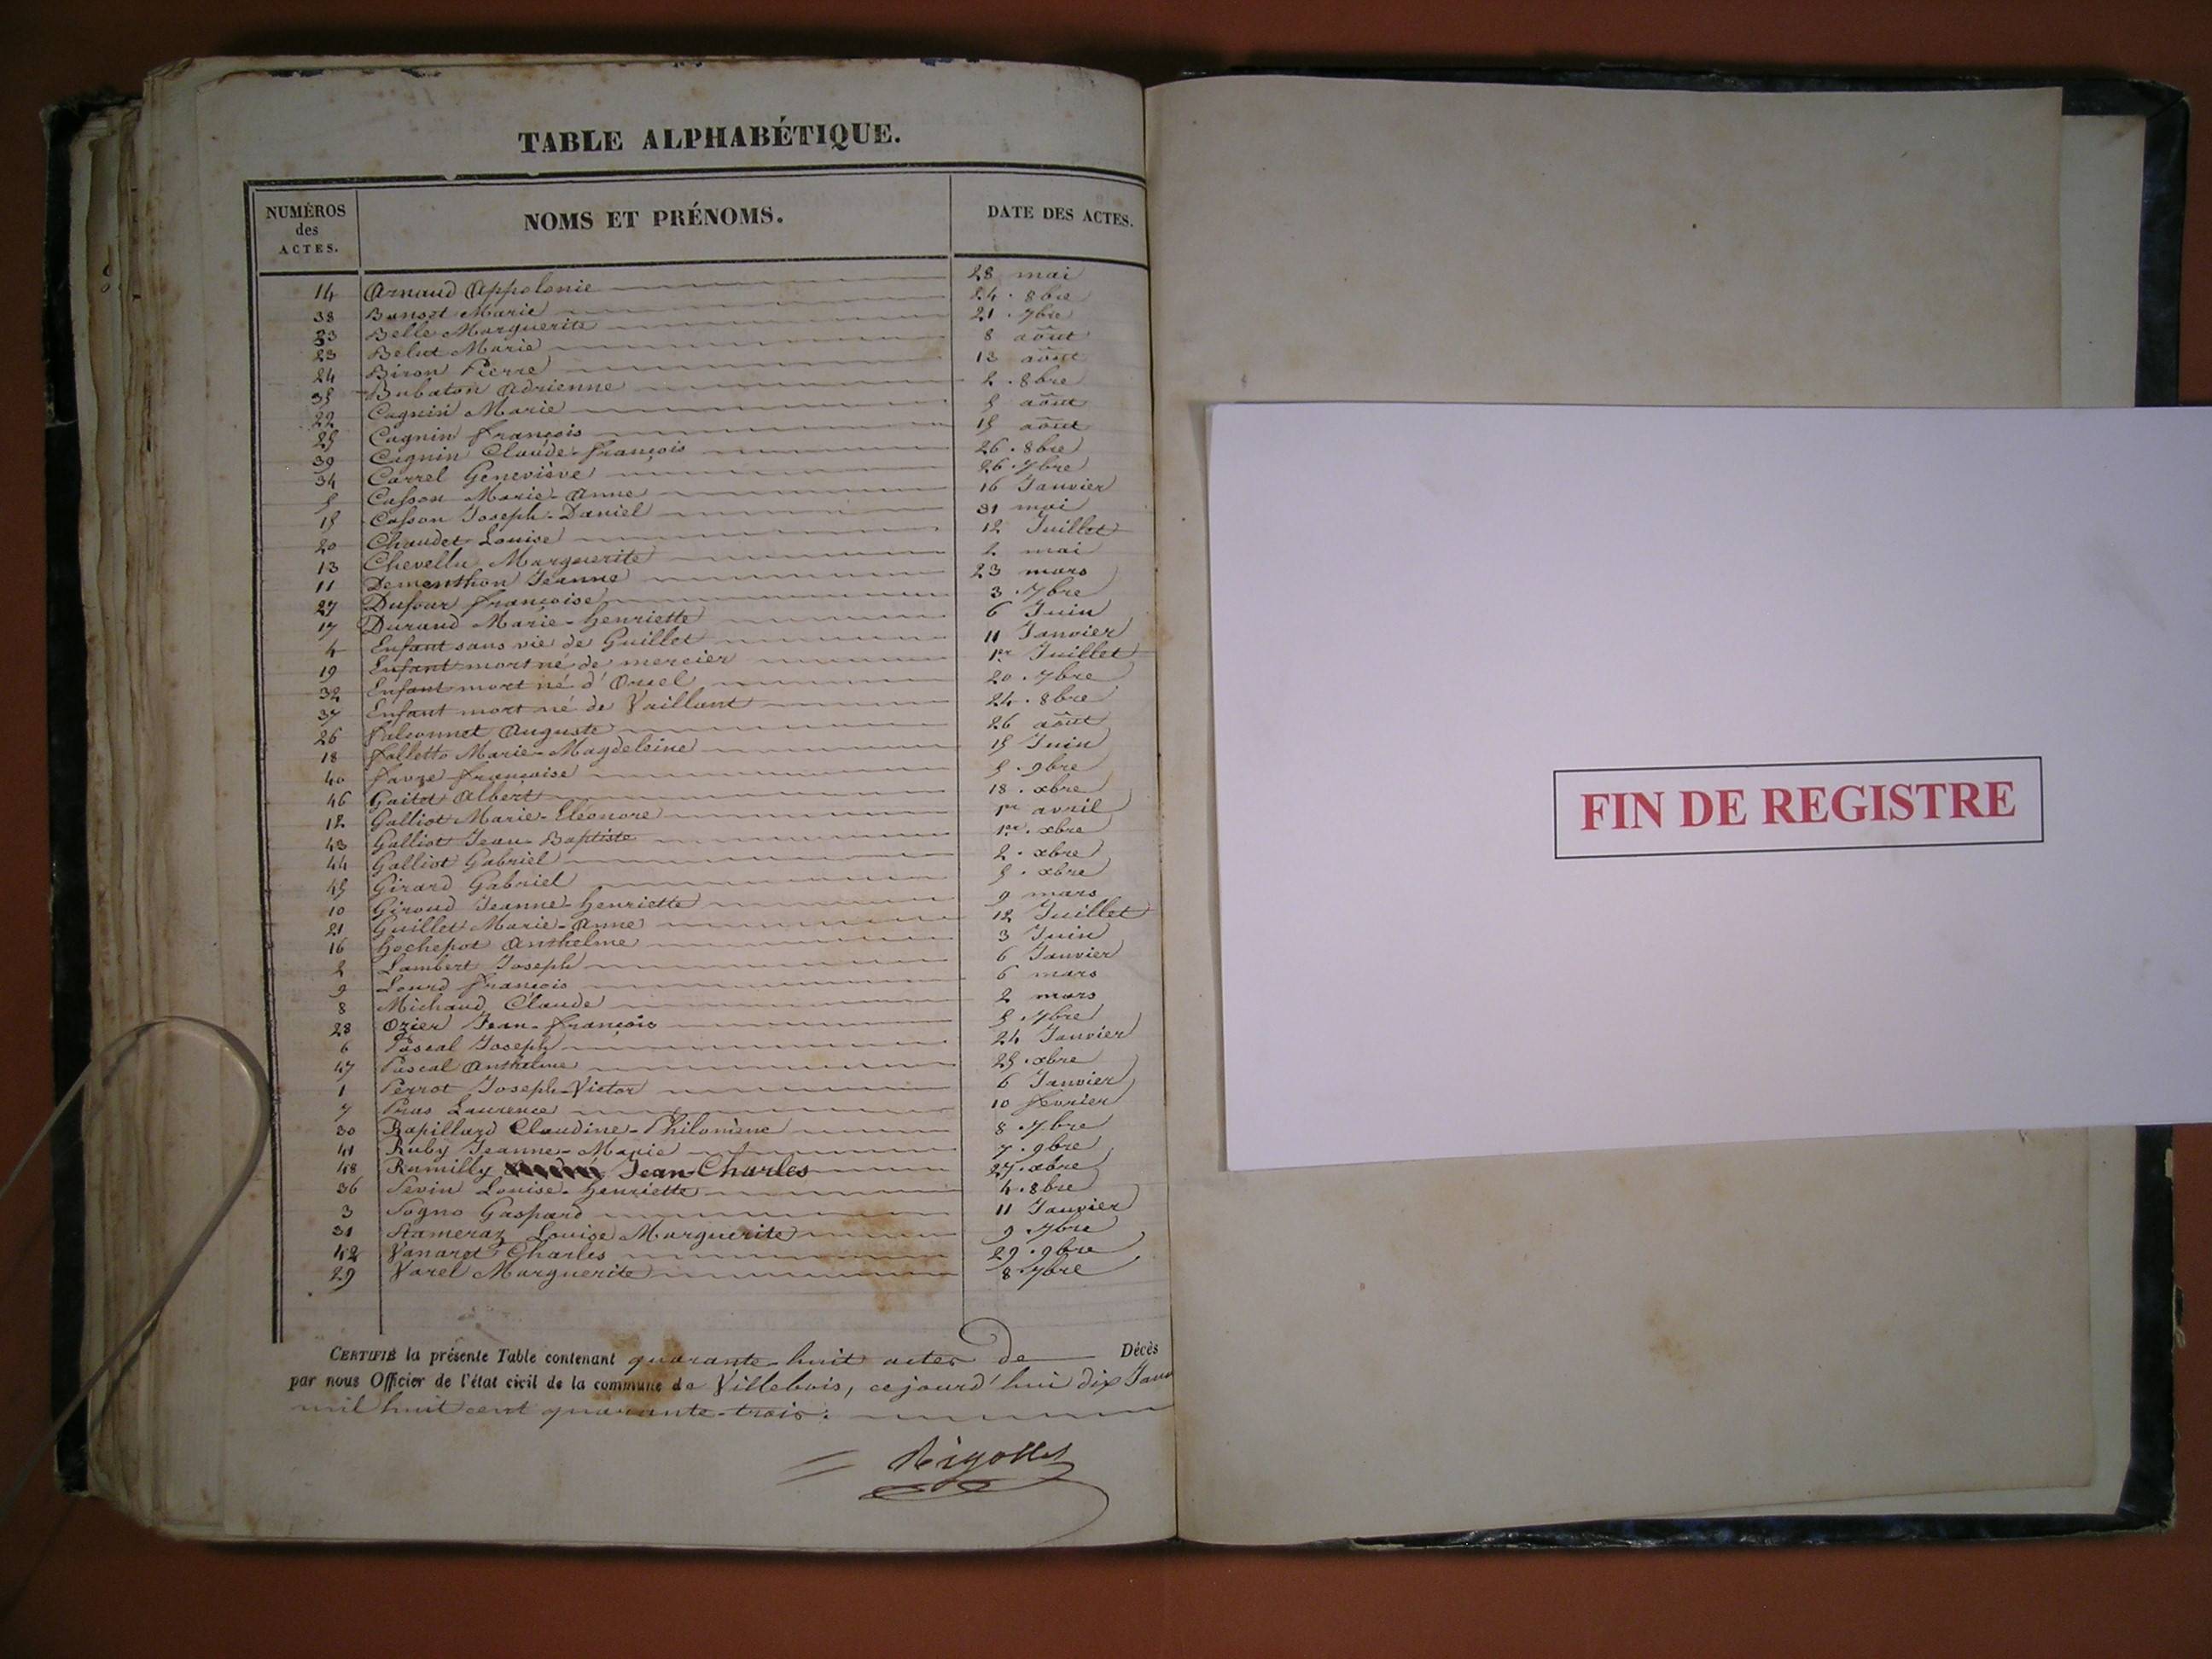 TABLE ALPHABÉTIQUE.
NUMÉROS
des
ACTES.
NOMS ET PRÉNOMS.
DATE DES ACTES.
14 Arnaud Appolonie 28 mai
38 Bansot Marie 24. 8bre
33 Belle Marguerite 21. 7bre
23 Belut Marie 8 août
24 Biron Pierre 13 août
35 Bubaton Adrienne 2. 8bre
22 Cagnin Marie 5 août
25 Cagnin françois 15 août
39 Cagnin Claude-françois 26. 8bre
34 Carrel Geneviève 26. 7bre
5 Casson Marie-Anne 16 Janvier
15 Casson Joseph-Daniel 31 mai
20 Chaudet Louise 12 Juillet
13 Chevellu Marguerite 2 mai
11 Dementhon Jeanne 23 mars
27 Dufour françoise 3. 7bre
17 Durand Marie-henriette 6 Juin
4 Enfant sans vie de Guillet 11 Janvier
19 Enfant mort né de mercier 1er Juillet
32 Enfant mort né d'Oruel 20. 7bre
37 Enfant mort né de Vaillant 24. 8bre
26 falconnet Auguste 26 août
18 falletto Marie-Magdeleine 15 Juin
40 favre françoise 5. 9bre
46 Gaitet Albert 18. xbre
12 Galliot Marie-Eléonore 1er avril
43 Galliot Jean-Baptiste 1er. xbre
44 Galliot Gabriel 2. xbre
45 Girard Gabriel 5. xbre
10 Giroud Jeanne-henriette 9 mars
21 Guillet Marie-Anne 12 Juillet
16 hochepot Anthelme 3 Juin
2 Lambert Joseph 6 Janvier
9 Lourd françois 6 mars
8 Michaud Claude 2 mars
28 Ozier Jean-françois 5. 7bre
6 Pascal Joseph 24 Janvier
47 Pascal Anthelme 25. xbre
1 Perrot Joseph-Victor 6 Janvier
7 Pras Laurence 10 février
30 Rapillard Claudine-Philomène 8. 7bre
41 Ruby Jeanne-Marie 7. 9bre
48 Rumilly Jean-Charles 27. xbre
36 Sevin Louise-henriette 4. 8bre
3 Sogno Gaspard 11 Janvier
31 Stameraz Louise Marguerite 9. 7bre
42 Vanaret Charles 29. 9bre
29 Varel Marguerite 8 7bre
CERTIFIÉ la présente Table contenant quarante-huit actes de Décès
par nous Officier de l'état civil de la commune de Villebois, cejourd'hui dix Janv
mil huit cent quarante-trois.
Rigollet
FIN DE REGISTRE